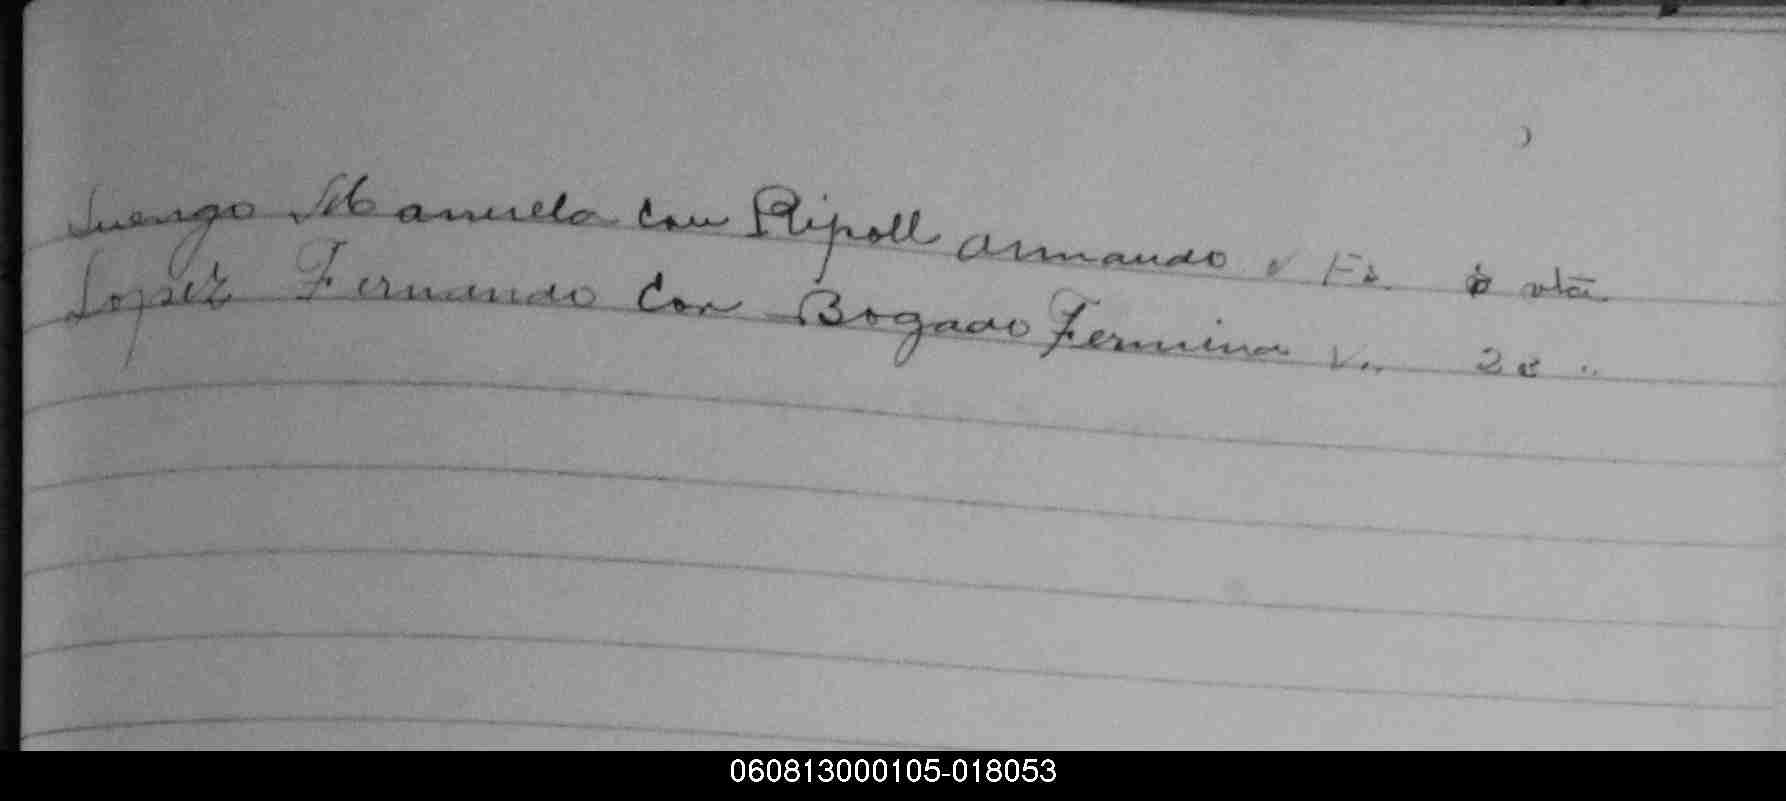 Luengo Manuela con Ripoll Armando Fs. vta
Lopez Fernando con Bogado Fermina 20 "
060813000105-018053